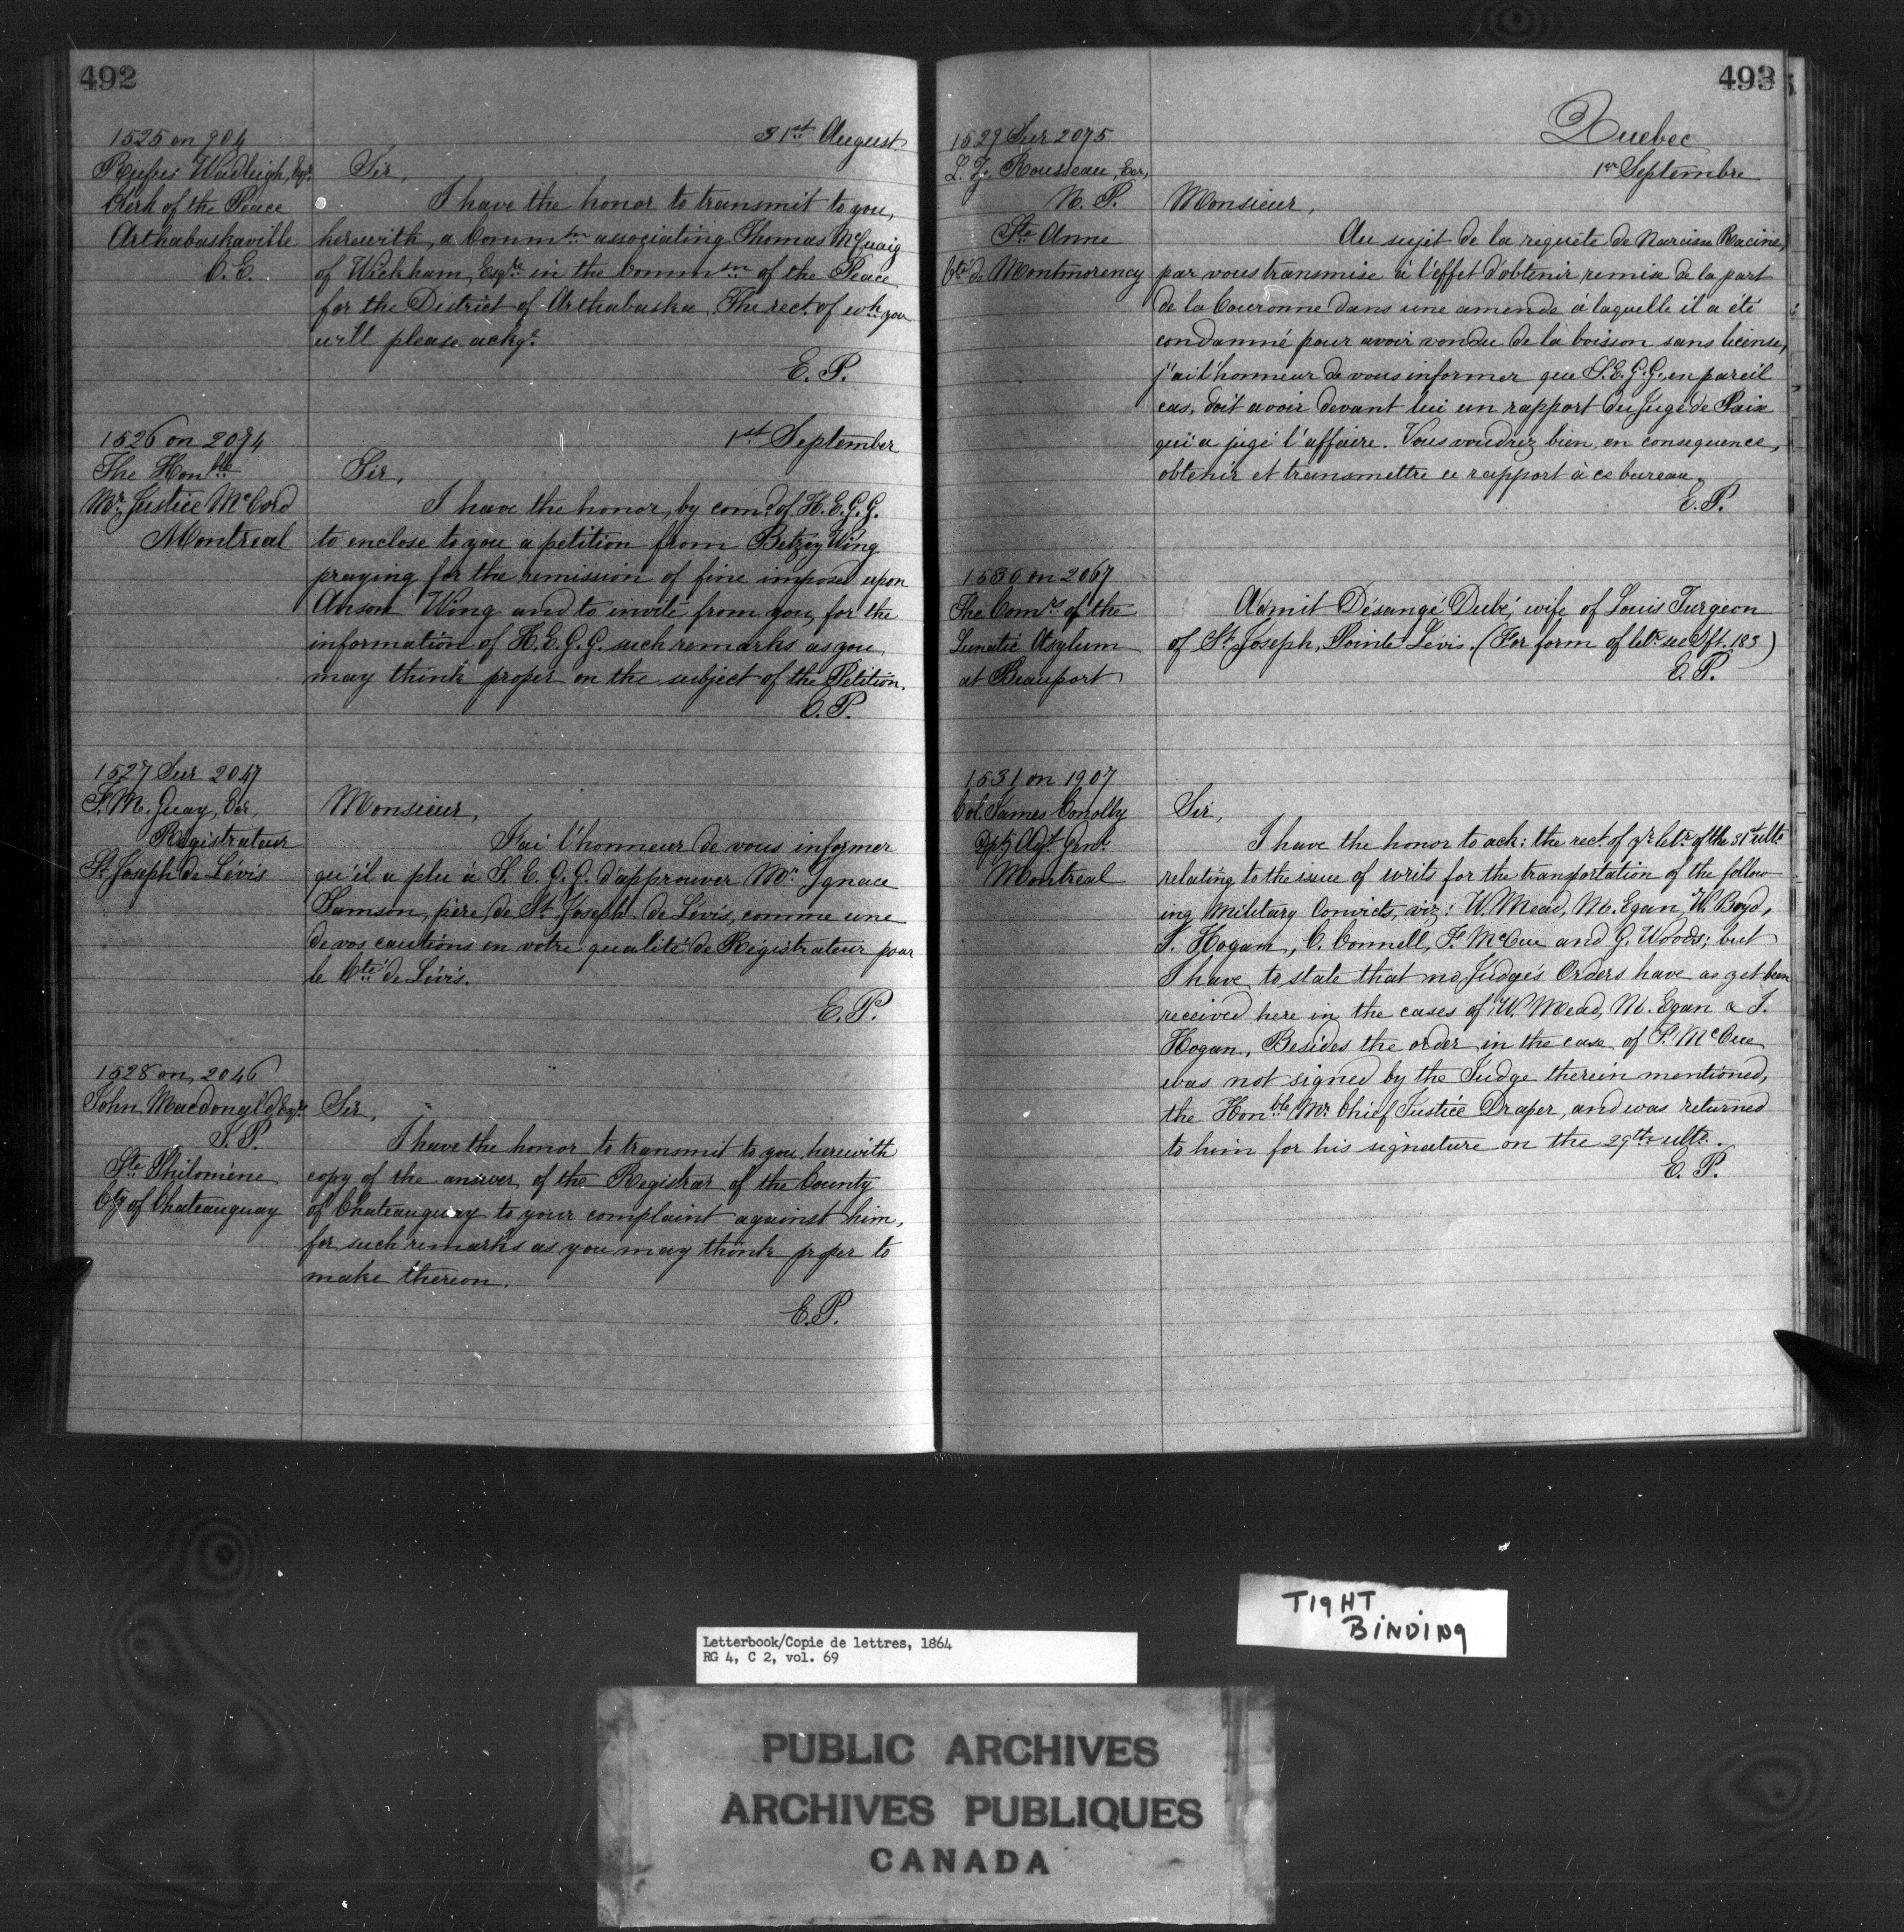 492
31st August
1525 on 904
Rufus Wadleigh, Esqr.
Clerk of the Peace
Arthabaskaville
C. E.
Sir,
I have the honor to transmit to you,
herewith, a Commtn associating Thomas McCuaig
of Wickham, Esqre in the Commsn of the Peace
for the District of Arthabaska. The rect. of wh. you
will please ackge.
E. P.
1st September
1526 on 2074
The Honble
Mr. Justice McCord
Montreal
Sir,
I have the honor, by comd. of H. E. G. G.
to enclose to you a petition from Betzey Wing
praying for the remission of fine imposed upon
Anson Wing and to invite from you, for the
information of H. E. G. G. such remarks as you
may think proper on the subject of the Petition.
E. P.
1527 Sur 2047
F. M. Guay, Ecr,
Registrateur
St Joseph de Lévis
Monsieur,
J'ai l'honneur de vous informer
qu'il a plu à S. E. G. G. d'approuver Mr. Ignace
Samson, père, de St. Joseph de Lévis, comme une
de vos cautions en votre qualité de Régistrateur pour
le Cté de Lévis.
E. P.
1528 on 2046
John Macdonald Esqre
J. P.
Ste Philomène
Cty of Chateauguay
Sir,
I have the honor to transmit to you, herewith
copy of the answer of the Registrar of the County
of Chateauguay to your complaint against him,
for such remarks as you may think proper to
make thereon.
E. P.
493
Quebec
1er Septembre
1529 Sur 2075
L. Z. Rousseau, Ecr,
N. P.
Ste Anne
Cté de Montmorency
Monsieur,
Au sujet de la requête de Narcisse Racine,
par vous transmise à l'effet d'obtenir remise de la part
de la Couronne dans une amende à laquelle il a été
condamné pour avoir vendu de la boisson sans license,
j'ai l'honneur de vous informer que S. E. G. G., en pareil
cas, doit avoir devant lui un rapport du Juge de Paix
qui a jugé l'affaire. Vous voudrez bien, en consequence,
obtenir et transmettre ce rapport à ce bureau.
E. P.
1530 on 2067
The Comrs of the
Lunatic Asylum
at Beauport
Admit Désangé Dubé, wife of Louis Turgeon
of St. Joseph, Pointe Lévis. (For form of letr. see Lft. 183)
E. P.
1531 on 1907
Col. James Conolly
Dpty Adjt. Genl.
Montreal
Sir,
I have the honor to ack: the rect. of yr. letr. of the 31st ulto
relating to the issue of writs for the transportation of the follow-
ing Military Convicts, viz: W. Mead, M. Egan, W. Boyd,
T. Hogan, C. Connell, F. McCue and G. Woods; but
I have to state that no Judge's Orders have as yet been
received here in the cases of W. Mead, M. Egan & T.
Hogan. Besides the order in the case of F. McCue
was not signed by the Judge therein mentioned,
the Honble Mr. Chief Justice Draper, and was returned
to him for his signature on the 29th ulto.
E. P.
TIGHT
BINDING
Letterbook/Copie de lettres, 1864
RG 4, C 2, vol. 69
PUBLIC ARCHIVES
ARCHIVES PUBLIQUES
CANADA